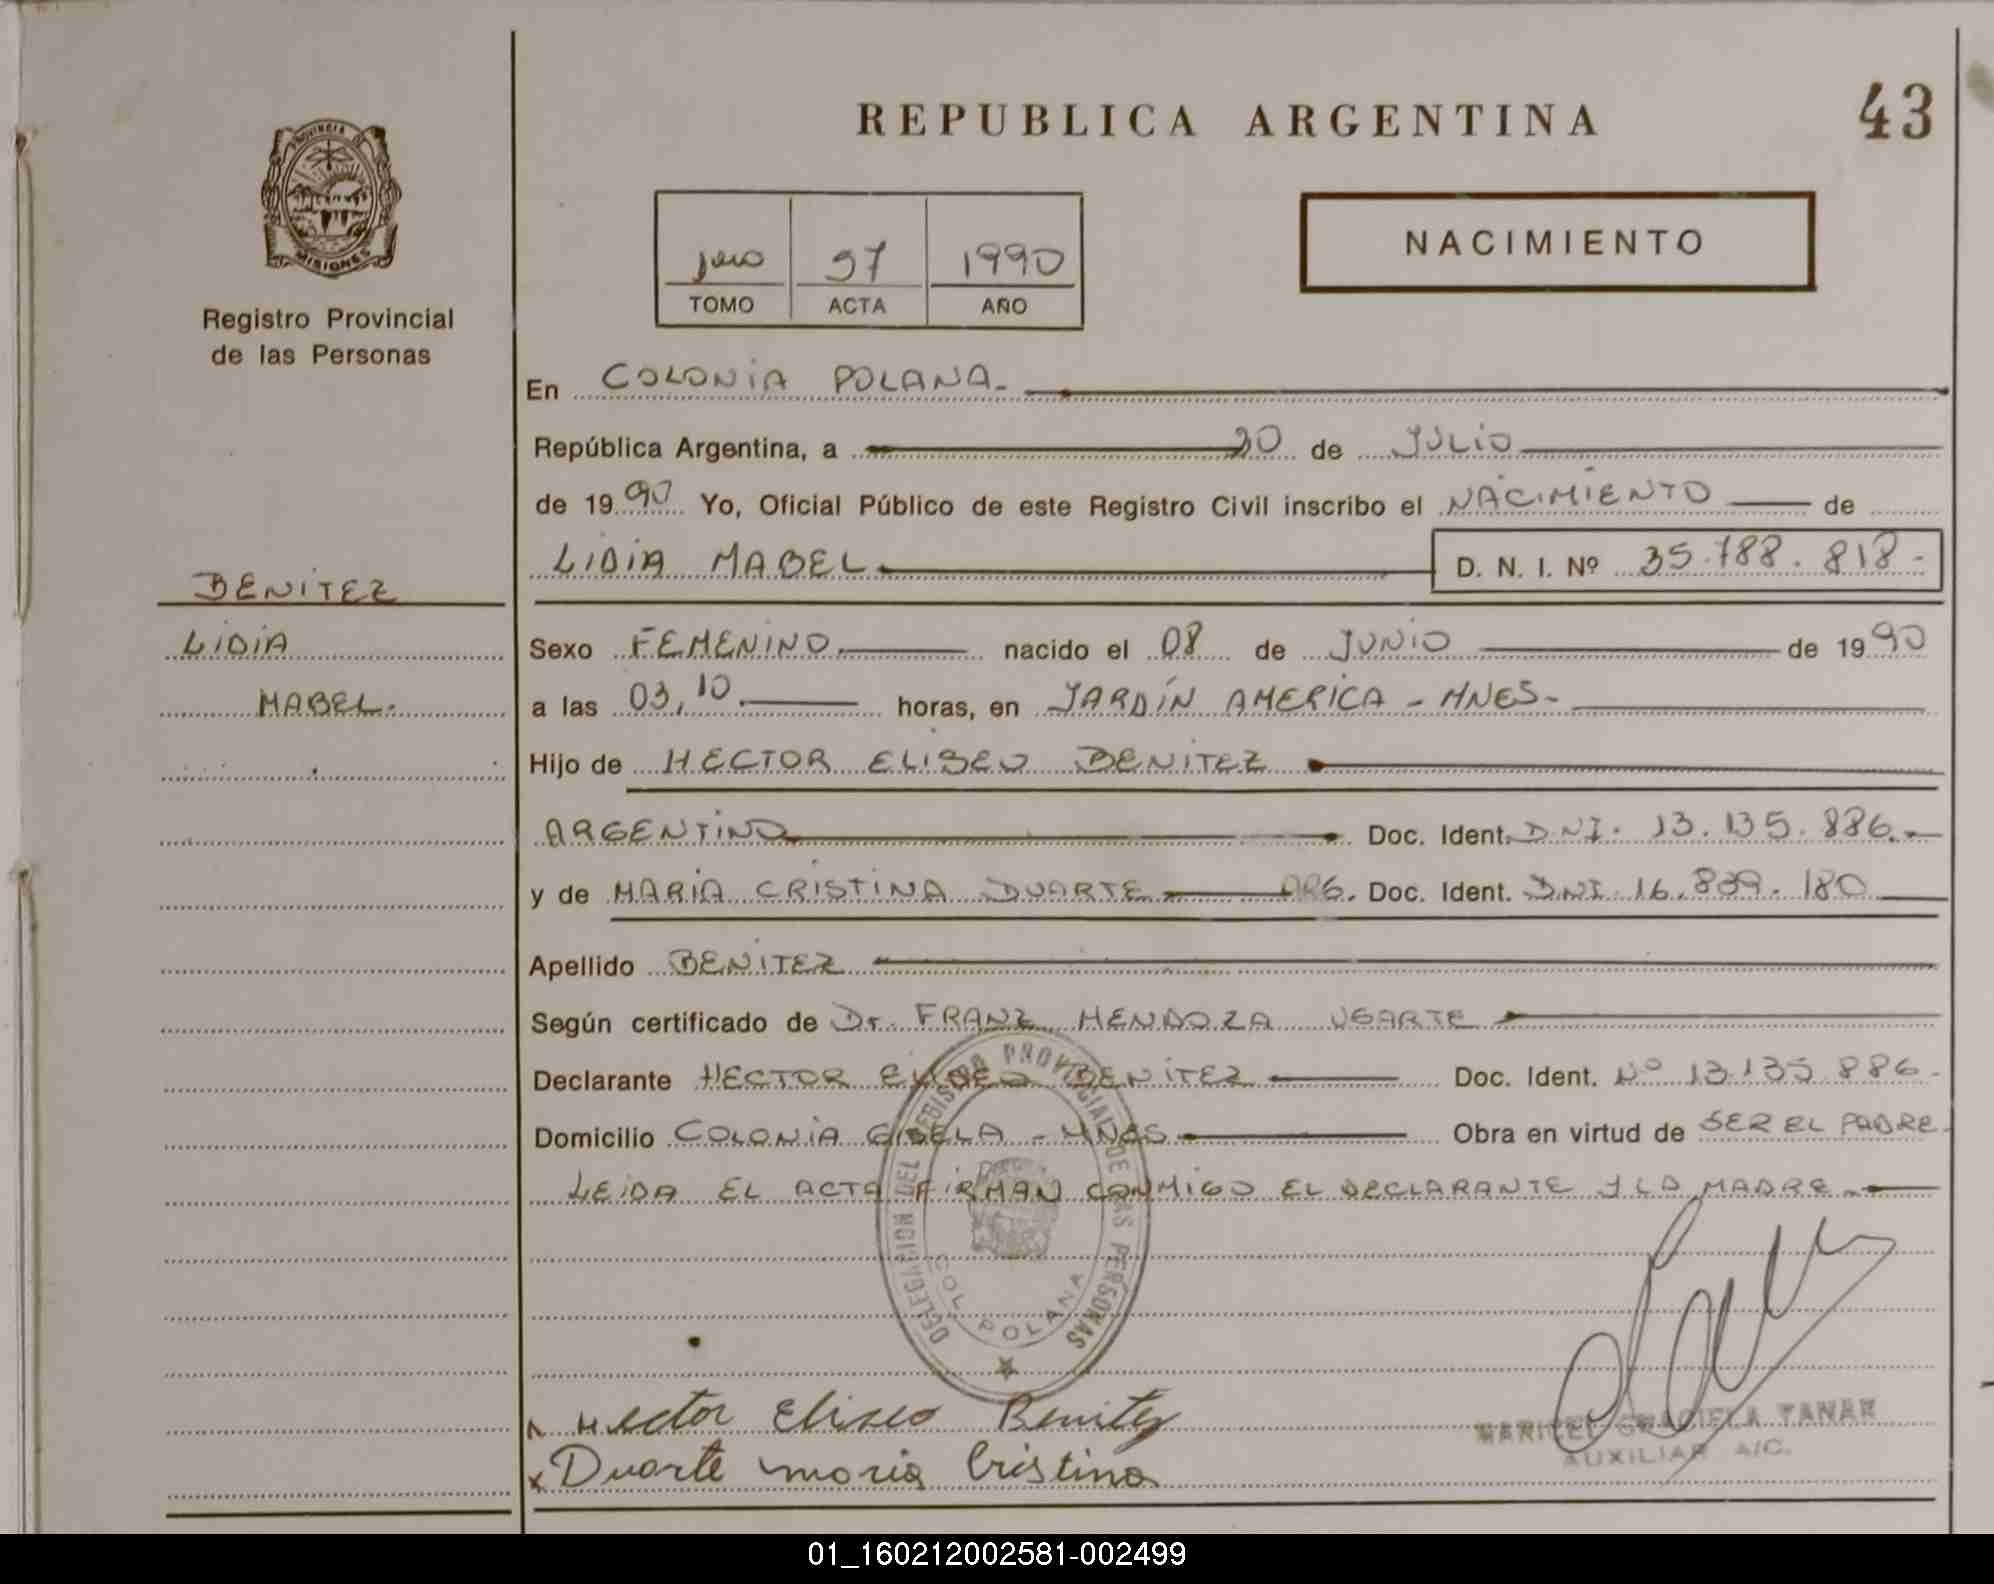 REPUBLICA ARGENTINA
43
PROVINCIA DE
MISIONES
Registro Provincial
de las Personas
1990
TOMO ACTA AÑO
NACIMIENTO
En COLONIA POLANA.
República Argentina, a 20 de JULIO
de 1990 Yo, Oficial Público de este Registro Civil inscribo el NACIMIENTO de
LIDIA MABEL D. N. I. Nº 35.788.818.-
BENITEZ
LIDIA
MABEL.
Sexo FEMENINO. nacido el 08 de JUNIO de 1990
a las 03,10. horas, en JARDÍN AMERICA - MNES-
Hijo de HECTOR ELISEO BENITEZ
ARGENTINO Doc. Ident. DNI. 13.135.886.-
y de MARIA CRISTINA DUARTE ARG. Doc. Ident. DNI 16.839.180
Apellido BENITEZ
Según certificado de Dr. FRANZ MENDOZA UGARTE
Declarante HECTOR ELISEO BENITEZ Doc. Ident. Nº 13.135.886-
Domicilio COLONIA GISELA - MNES Obra en virtud de SER EL PADRE.
LEIDA EL ACTA FIRMAN CONMIGO EL DECLARANTE Y LA MADRE.-
DELEGACION DEL REGISTRO PROVINCIAL DE LAS PERSONAS
COL. POLANA
Hector Eliseo Benitez
x Duarte maria Cristina
MARICEL GRACIELA TANAK
AUXILIAR A/C.
01_160212002581-002499